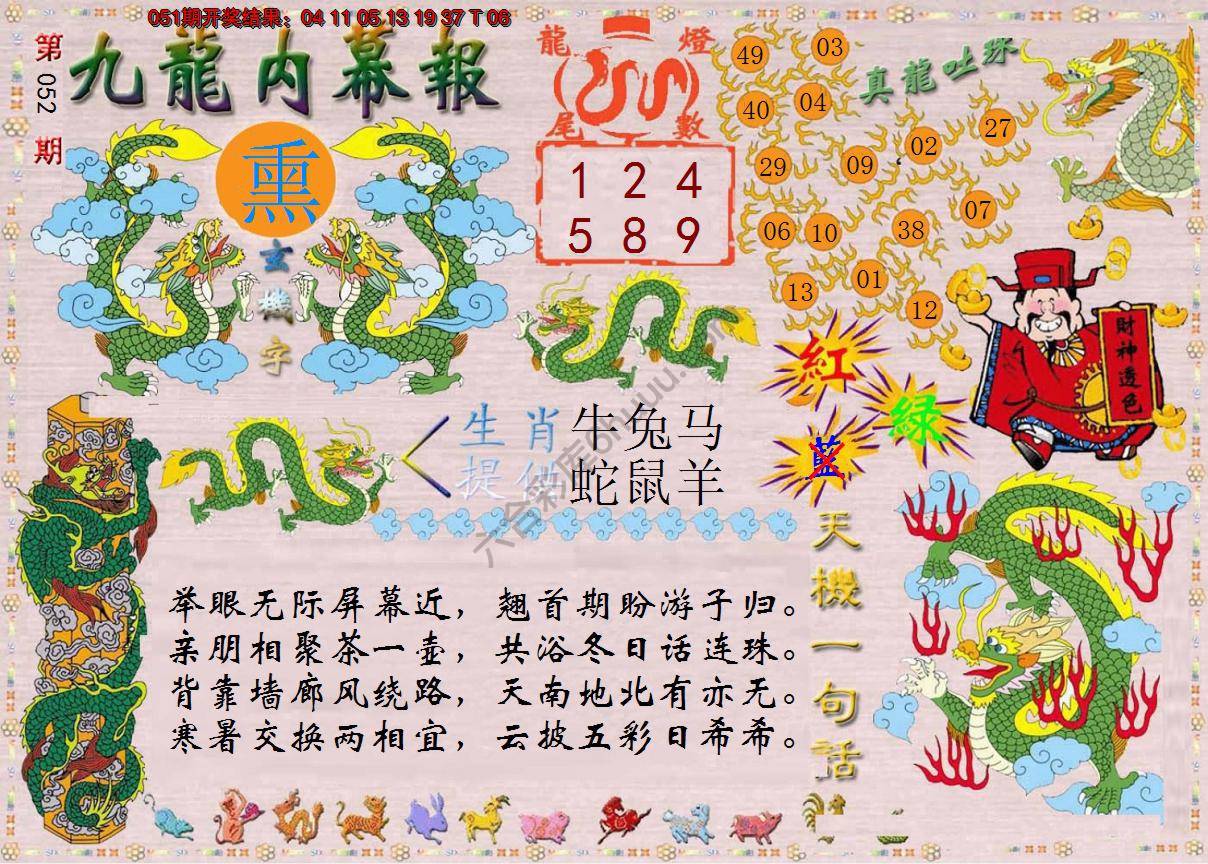 051期开奖结果：04 11 05 13 19 37 T 06
第052期
九龍内幕報
熏
玄機字
龍燈
尾數
1 2 4
5 8 9
真龍吐珠
49 03
40 04
27
02
29 09
07
06 10 38
13 01
12
紅
綠
藍
財神透色
生肖 牛兔马
提供 蛇鼠羊
天機一句話
举眼无际屏幕近，翘首期盼游子归。
亲朋相聚茶一壶，共浴冬日话连珠。
背靠墙廊风绕路，天南地北有亦无。
寒暑交换两相宜，云披五彩日希希。